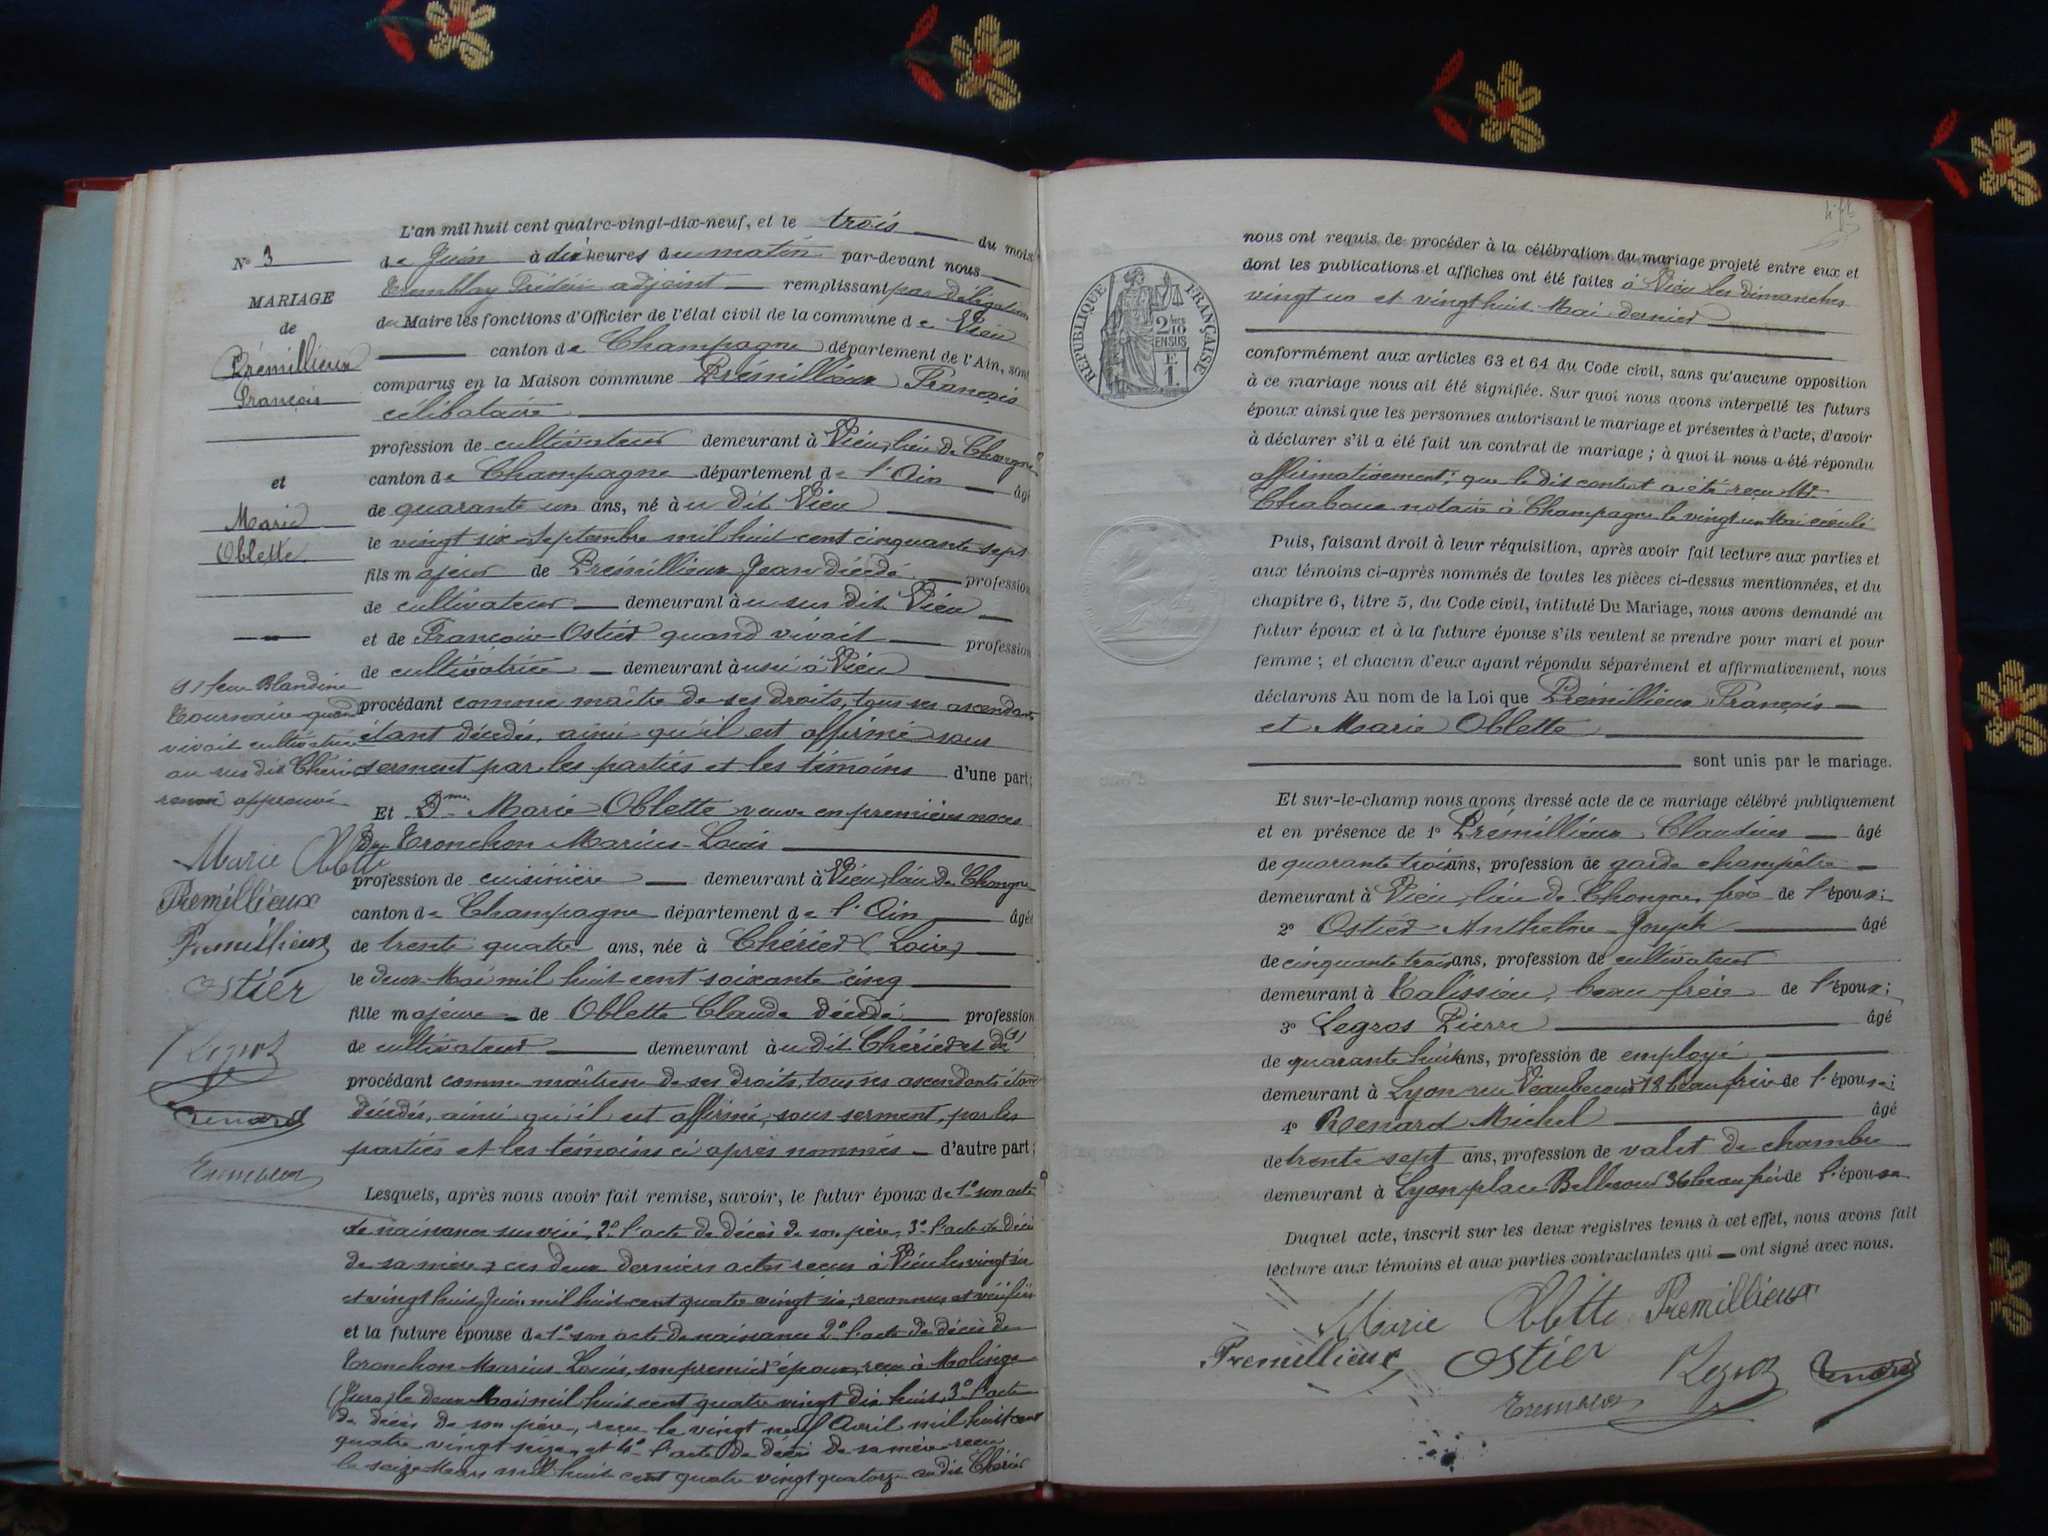 N° 3
MARIAGE
de
Prémillieux
François
et
Marie
Oblette
(1) feue Blandine
Tournaire quand
vivait cultivatrice
au sus dit Chérier
renvoi approuvé
Marie Oblette
Premillieux
Premillieux
Ostier
Legros
Renard
L'an mil huit cent quatre-vingt-dix-neuf, et le trois du mois
de Juin à dix heures du matin par-devant nous
Tremblay adjoint remplissant par délégation
du Maire les fonctions d'Officier de l'état civil de la commune de Vieu
canton de Champagne département de l'Ain, sont
comparus en la Maison commune Prémillieux François
célibataire
profession de cultivateur demeurant à Vieu, lieu de Chongnes
canton de Champagne département de l'Ain âgé
de quarante un ans, né à u dit Vieu
le vingt six Septembre mil huit cent cinquante sept
fils majeur de Prémillieux Jean décédé profession
de cultivateur demeurant à u sus dit Vieu
et de Françoise Ostier quand vivait profession
de cultivatrice demeurant à ussi à Vieu
procédant comme maître de ses droits, tous ses ascendants
étant décédés, ainsi qu'il est affirmé sous
serment par les parties et les témoins d'une part;
Et Dme Marie Oblette veuve en premières noces
de Tronchon Marius Louis
profession de cuisinière demeurant à Vieu, lieu de Chongnes
canton de Champagne département de l'Ain âgée
de trente quatre ans, née à Chérier (Loire)
le deux Mai mil huit cent soixante cinq
fille majeure de Oblette Claude décédé profession
de cultivateur demeurant à u dit Chérier et de (1)
procédant comme maîtresse de ses droits, tous ses ascendants étant
décédés, ainsi qu'il est affirmé, sous serment, par les
parties et les témoins ci après nommés d'autre part;
Lesquels, après nous avoir fait remise, savoir, le futur époux de 1° son acte
de naissance sus visé, 2° l'acte de décès de son père, 3° l'acte de décès
de sa mère, ces deux derniers actes reçus à Vieu les vingt six
et vingt huit Juin mil huit cent quatre vingt six, reconnus et vérifiés
et la future épouse de 1° son acte de naissance 2° l'acte de décès de
Tronchon Marius Louis, son premier époux, reçu à Molinges
(Jura) le deux Mai mil huit cent quatre vingt dix huit, 3° l'acte
de décès de son père, reçu le vingt neuf Avril mil huit cent
quatre vingt seize, et 4° l'acte de décès de sa mère reçu
le seize Mars mil huit cent quatre vingt quatorze au dit Chérier
RÉPUBLIQUE FRANÇAISE
2/10
EN SUS
nous ont requis de procéder à la célébration du mariage projeté entre eux et
dont les publications et affiches ont été faites à Vieu les dimanches
vingt un et vingt huit Mai dernier
conformément aux articles 63 et 64 du Code civil, sans qu'aucune opposition
à ce mariage nous ait été signifiée. Sur quoi nous avons interpellé les futurs
époux ainsi que les personnes autorisant le mariage et présentes à l'acte, d'avoir
à déclarer s'il a été fait un contrat de mariage; à quoi il nous a été répondu
affirmativement, que le dit contrat a été reçu Me
Chaboux notaire à Champagne le vingt un Mai écoulé
Puis, faisant droit à leur réquisition, après avoir fait lecture aux parties et
aux témoins ci-après nommés de toutes les pièces ci-dessus mentionnées, et du
chapitre 6, titre 5, du Code civil, intitulé Du Mariage, nous avons demandé au
futur époux et à la future épouse s'ils veulent se prendre pour mari et pour
femme; et chacun d'eux ayant répondu séparément et affirmativement, nous
déclarons Au nom de la Loi que Prémillieux François
et Marie Oblette
sont unis par le mariage.
Et sur-le-champ nous avons dressé acte de ce mariage célébré publiquement
et en présence de 1° Prémillieux Claudius âgé
de quarante trois ans, profession de garde champêtre
demeurant à Vieu, lieu de Chongnes, frère de l'époux;
2° Ostier Anthelme Joseph âgé
de cinquante trois ans, profession de cultivateur
demeurant à Talissieu, beau frère de l'époux;
3° Legros Pierre âgé
de quarante huit ans, profession de employé
demeurant à Lyon rue Vaubecour 18 beau frère de l'épouse;
4° Renard Michel âgé
de trente sept ans, profession de valet de chambre
demeurant à Lyon place Bellecour 36 beau frère de l'épouse
Duquel acte, inscrit sur les deux registres tenus à cet effet, nous avons fait
lecture aux témoins et aux parties contractantes qui ont signé avec nous.
Marie Oblette Premillieux
Premillieux Ostier Legros Renard